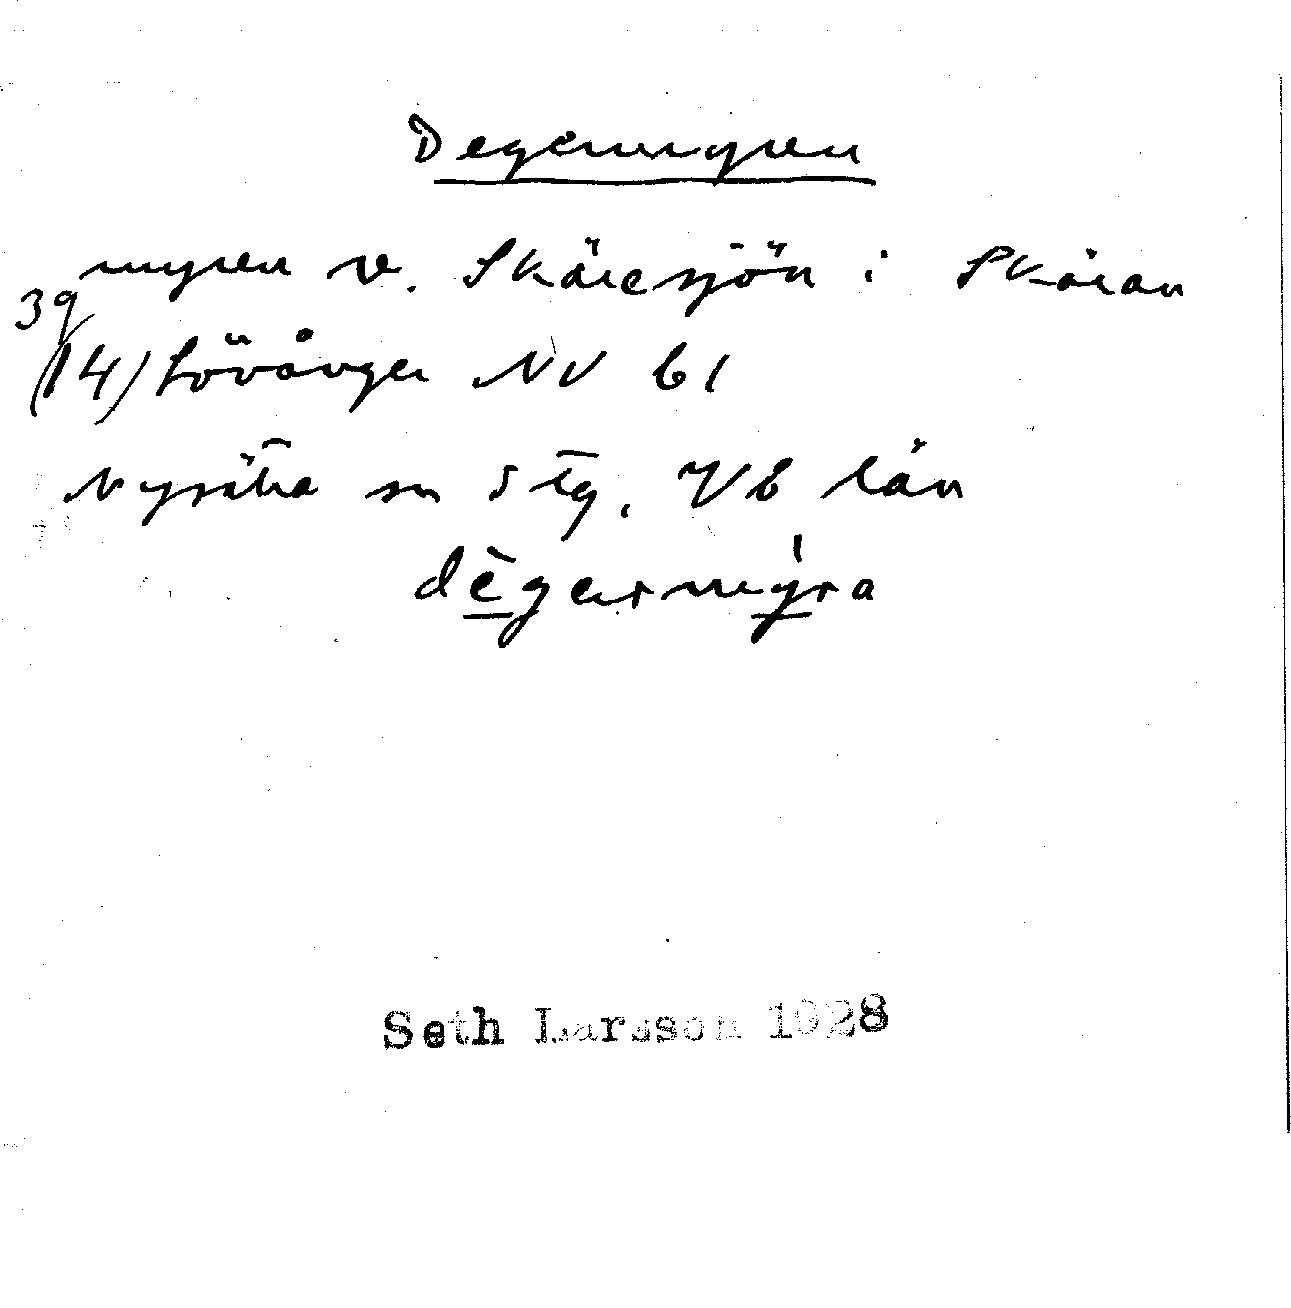 Degermyren
myren v. Skäresjön i Skäran
39
(14) Lövånger NV b1
Nysätra sn Stg. Vb län
dègermýra
Seth Larsson 1928